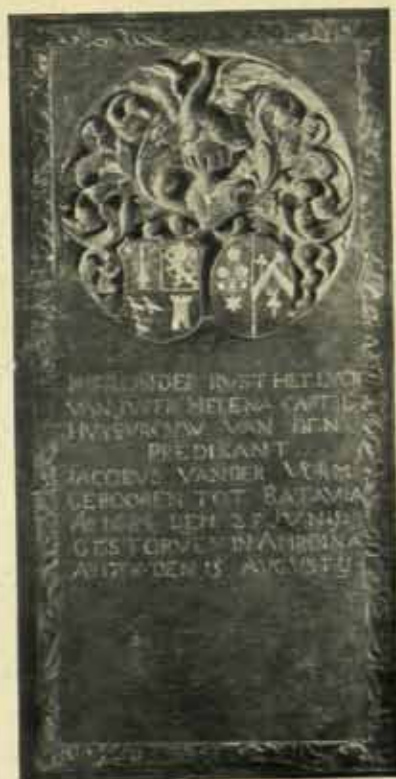 HIERONDER RUST HET LYCK
VAN JUFFR HELENA
HUYSVROUW VAN DEN
PREDIKANT
JACOBUS VANDER VORM
GEBOOREN TOT BATAVIA
DEN 25 JUNIJ
GESTORVEN IN AMBOINA
DEN 15 AUGUSTIJ